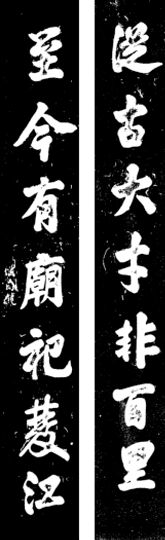 從古大才非百里
至今有廟祀江